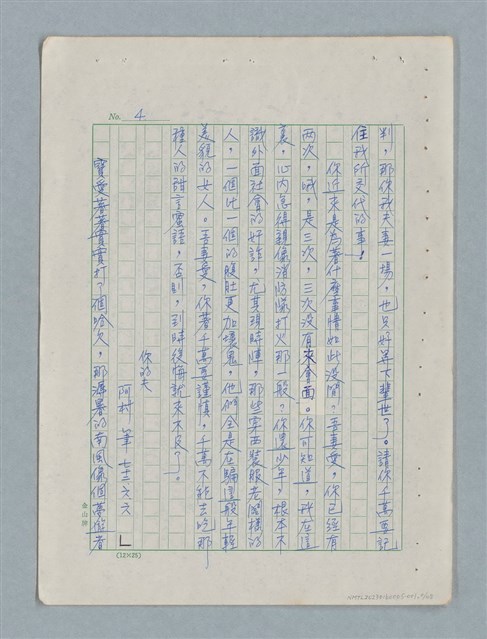 No. 4
判，那你我夫妻一場，也只好算下輩世了。請你千萬要記
住我所交代的事！
你近來是為著什麼事情如此沒閒？吾妻愛，你已經有
兩次，哦，是三次，三次沒有來會面。你可知道，我在這
裏，心內急得親像消防隊打火那一般？你還少年，根本不
識外面社會的奸詭，尤其現時陣，那些穿西裝服老闆樣的
人，一個比一個的腹肚更加壞鬼，他們全是在騙這般年輕
美貌的女人。吾妻愛，你著千萬要謹慎，千萬不能去吃那
種人的甜言蜜語，否則，到時後悔就來不及了。
你的夫
阿村 筆 七三、六、六
寶愛著著實實打了個哈欠，那溽暑的南風像個夢遊者
金山牌
(12×25)